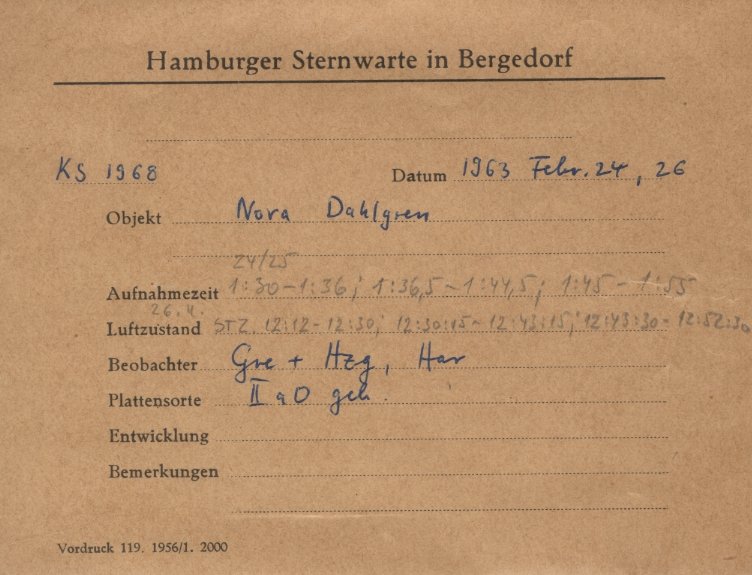 Hamburger Sternwarte in Bergedorf
KS 1968 Datum 1963 Febr. 24, 26
Objekt Nova Dahlgren
24/25
Aufnahmezeit 1:30-1:36; 1:36,5-1:44,5; 1:45-1:55
26. 4.
Luftzustand STZ. 12:12-12:30; 12:30:15-12:43:15; 12:43:30-12:52:30
Beobachter Gre + Hzg, Har
Plattensorte II a O geh.
Entwicklung
Bemerkungen
Vordruck 119. 1956/1. 2000